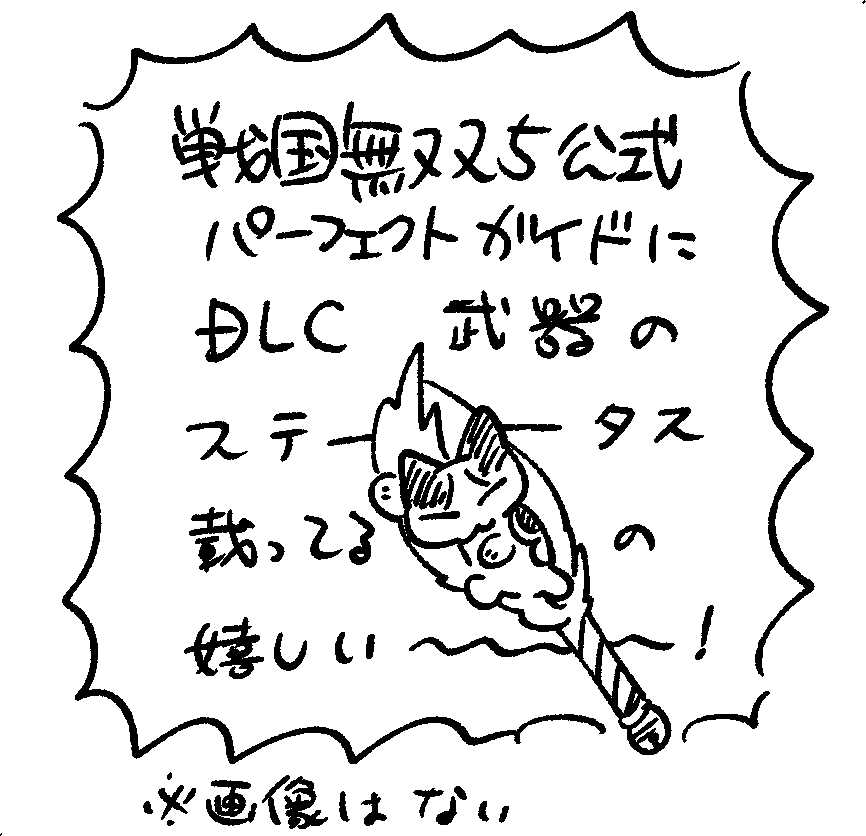 戦国無双5公式
パーフェクトガイドに
DLC 武器の
ステータス
載ってるの
嬉しい〜〜!
※画像はない